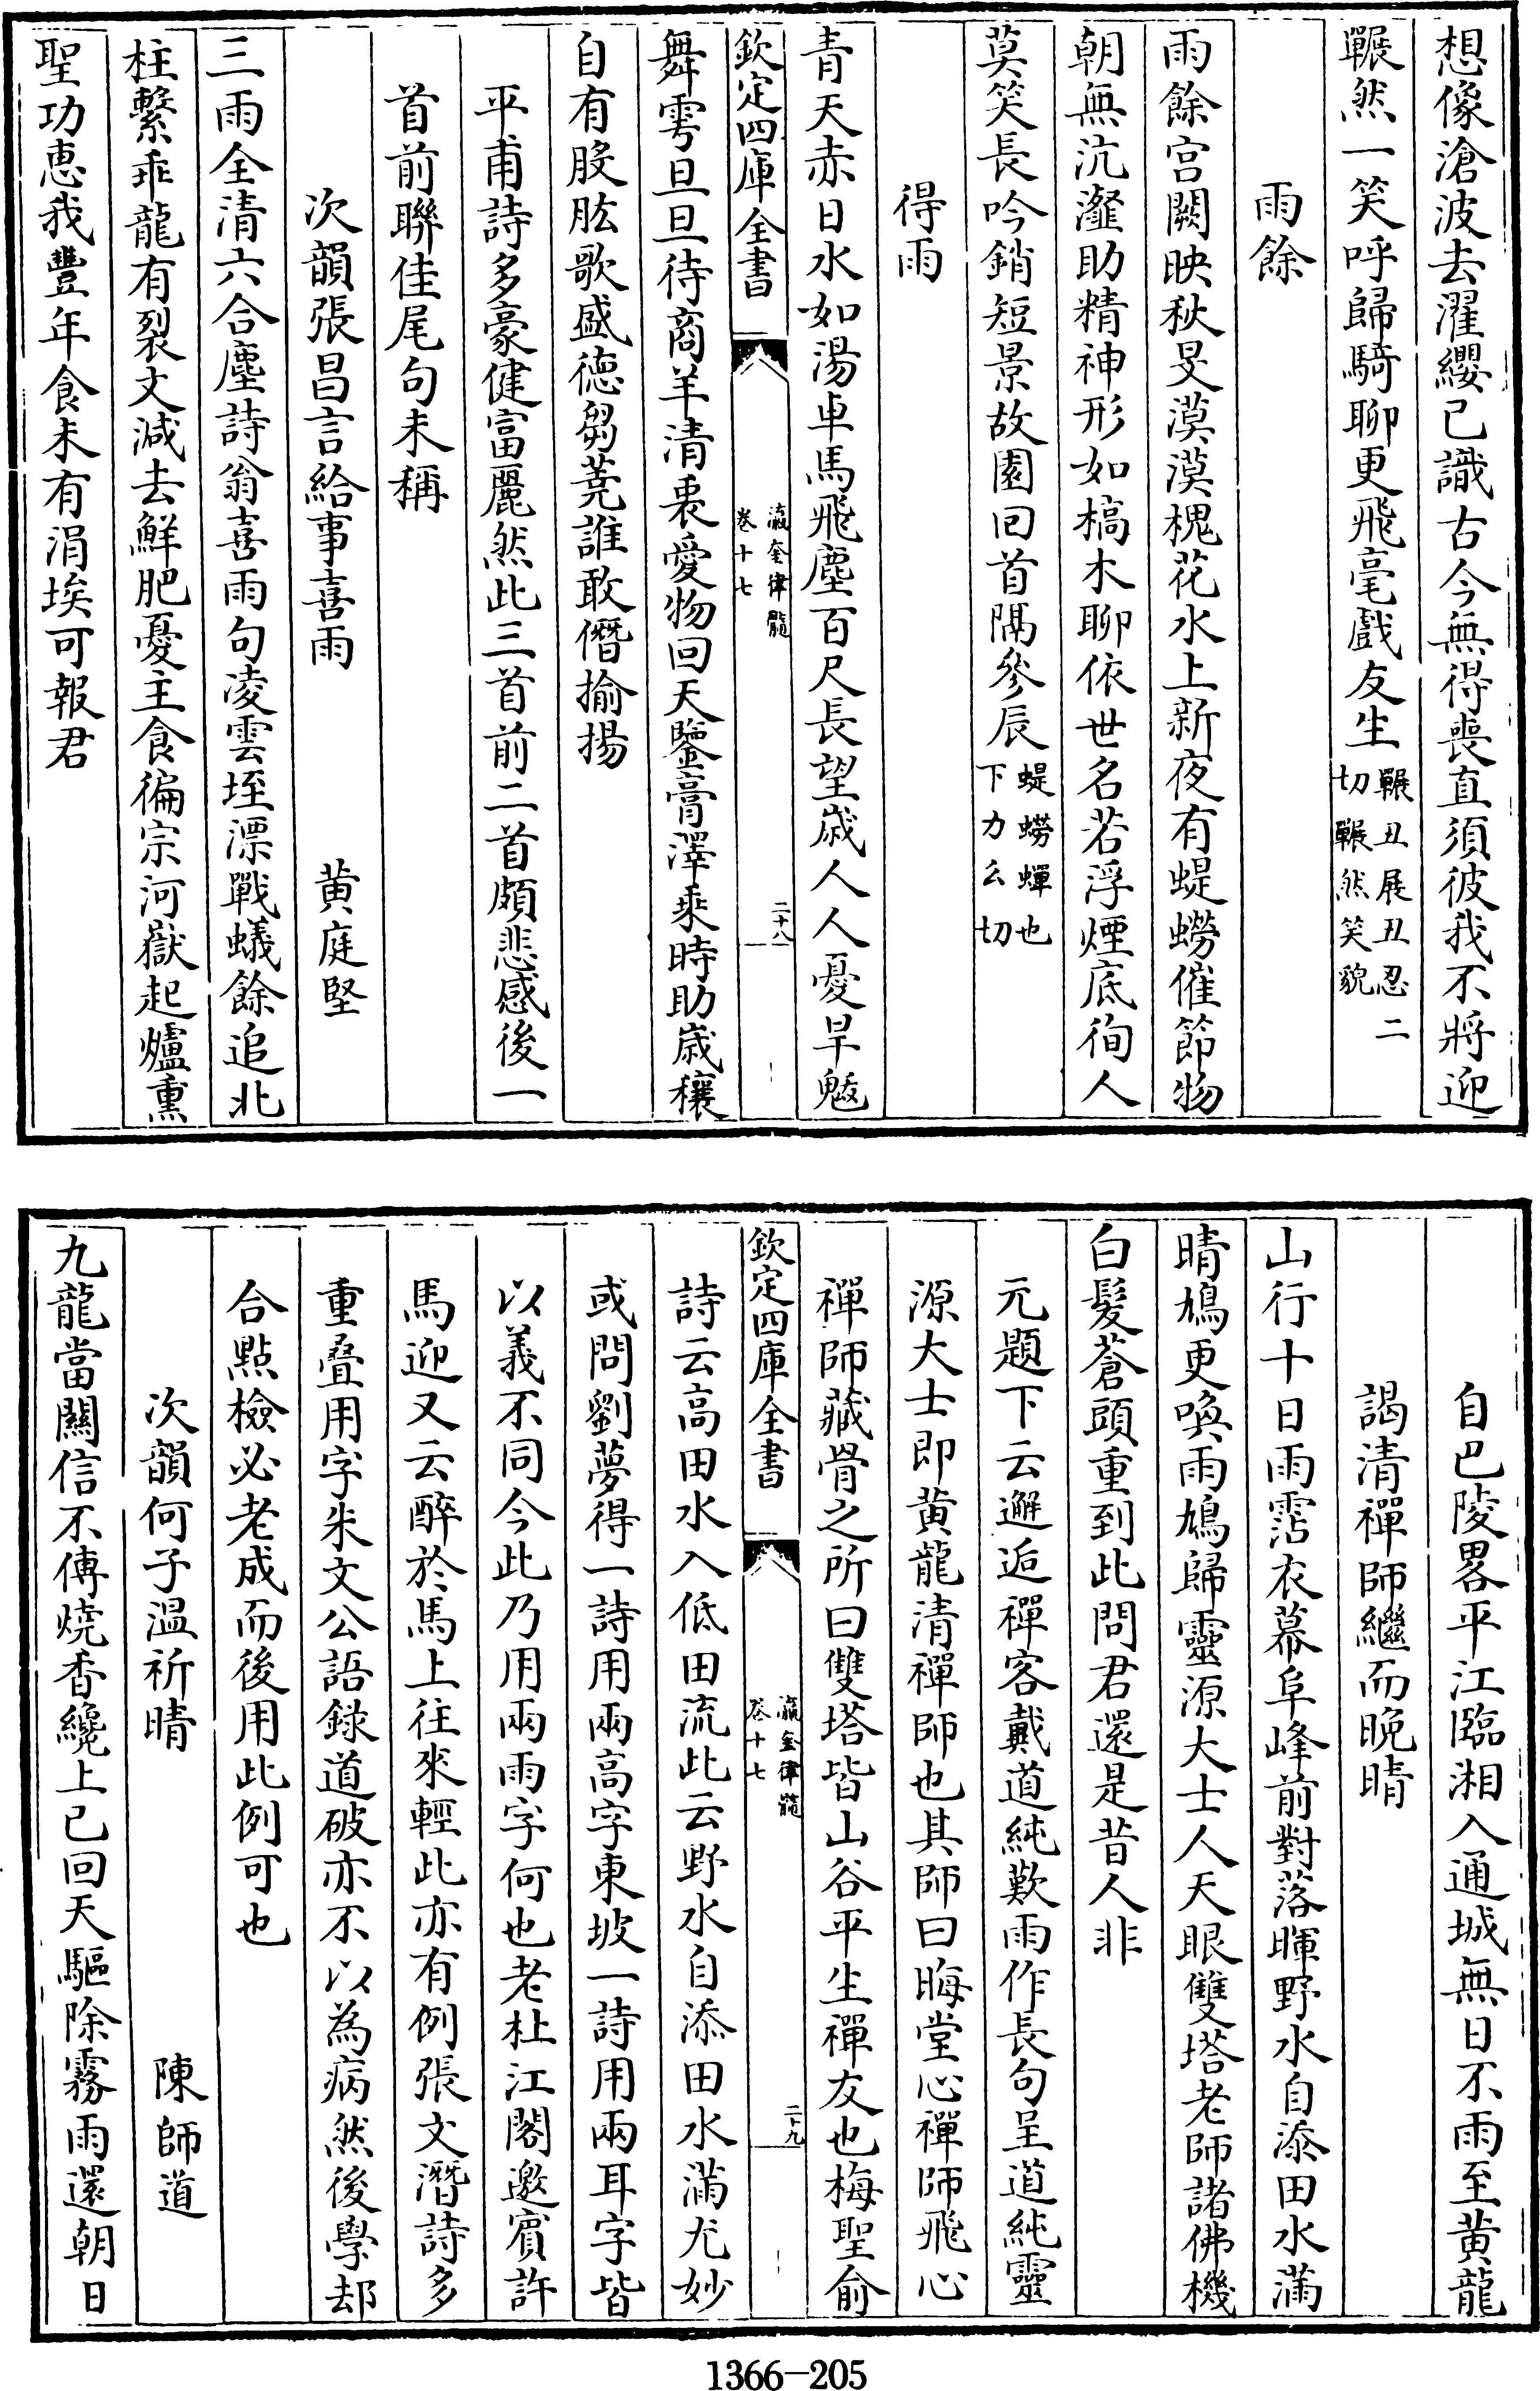 想像滄波去濯纓已識古今無得喪直須彼我不將迎
囅然一笑呼歸騎聊更飛毫戲友生囅丑展丑忍二切囅然笑貌
雨餘
雨餘宮闕映秋旻漠漠槐花水上新夜有蝭蟧催節物
朝無沆瀣助精神形如槁木聊依世名若浮煙底徇人
莫笑長吟銷短景故園回首隔參辰蝭蟧蟬也下力么切
得雨
青天赤日水如湯車馬飛塵百尺長望歲人人憂旱魃
欽定四庫全書
瀛奎律髓
卷十七
二十八
舞雩旦旦待商羊清衷愛物回天鑒膏澤乘時助歲穰
自有股肱歌盛徳芻蕘誰敢僭揄揚
平甫詩多豪健富麗然此三首前二首頗悲感後一
首前聯佳尾句未稱
次韻張昌言給事喜雨 黄庭堅
三雨全清六合塵詩翁喜雨句凌雲垤漂戰蟻餘追北
柱繫乖龍有裂文減去鮮肥憂主食徧宗河嶽起爐熏
聖功惠我豐年食未有涓埃可報君
自巴陵畧平江臨湘入通城無日不雨至黄龍
謁清禪師繼而晩晴
山行十日雨霑衣幕阜峰前對落暉野水自添田水滿
晴鳩更喚雨鳩歸靈源大士人天眼雙塔老師諸佛機
白髮蒼頭重到此問君還是昔人非
元題下云邂逅禪客戴道純歎雨作長句呈道純靈
源大士即黄龍清禪師也其師曰晦堂心禪師飛心
禪師藏骨之所曰雙塔皆山谷平生禪友也梅聖俞
欽定四庫全書
瀛奎律髓
卷十七
二十九
詩云高田水入低田流此云野水自添田水滿尤妙
或問劉夢得一詩用兩高字東坡一詩用兩耳字皆
以義不同今此乃用兩雨字何也老杜江閣邀賓許
馬迎又云醉於馬上往來輕此亦有例張文潛詩多
重疊用字朱文公語錄道破亦不以為病然後學却
合點檢必老成而後用此例可也
次韻何子溫祈晴 陳師道
九龍當關信不傳燒香纔上已回天驅除霧雨還朝日
1366-205